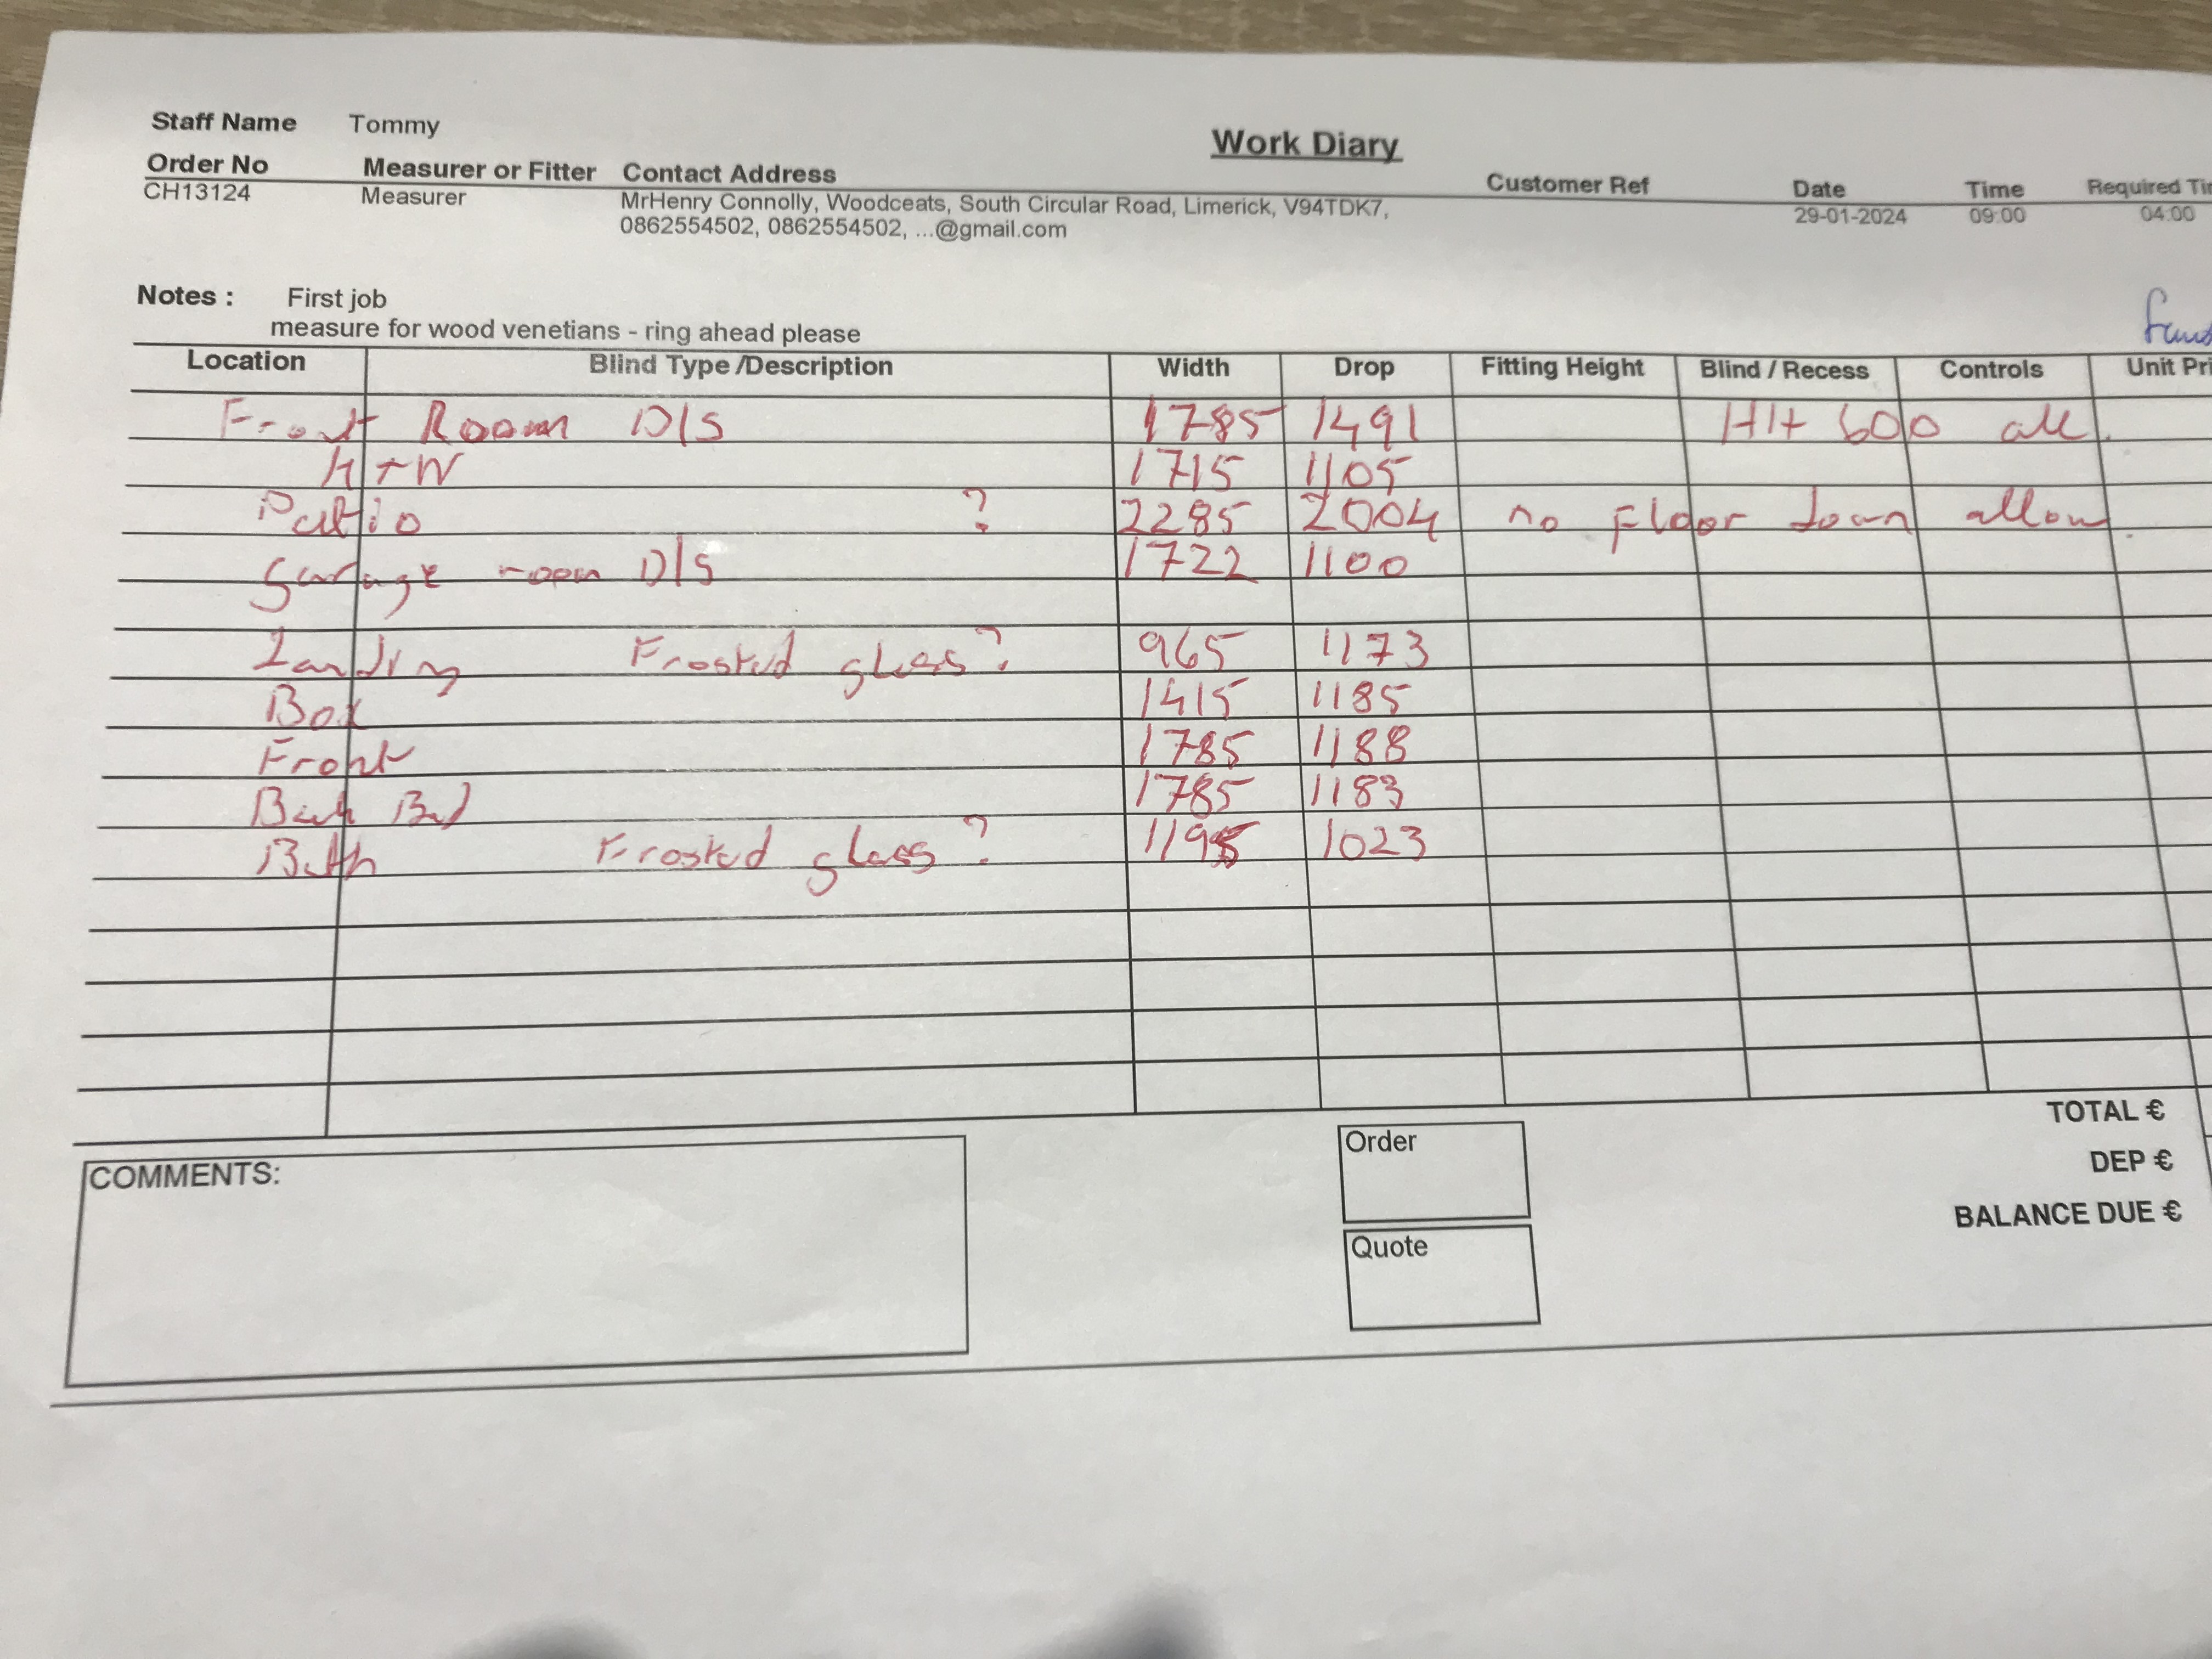 Staff Name Tommy
Work Diary
Order No Measurer or Fitter Contact Address Customer Ref Date Time Required
CH13124 Measurer MrHenry Connolly, Woodceats, South Circular Road, Limerick, V94TDK7, 29-01-2024 09:00 04:00
0862554502, 0862554502, ...@gmail.com
Notes : First job
measure for wood venetians - ring ahead please
Location Blind Type /Description Width Drop Fitting Height Blind / Recess Controls Unit
Front Room D/S 1785 1491 HH 600 all.
K+W 1715 1105
Patio ? 2285 2004 no Floor down allow
Garage room D/S 1722 1100
Landing Frosted glass? 965 1173
Box 1415 1185
Front 1785 1188
Back Bed 1785 1183
Bath Frosted glass? 1195 1023
TOTAL €
DEP €
BALANCE DUE €
COMMENTS:
Order
Quote